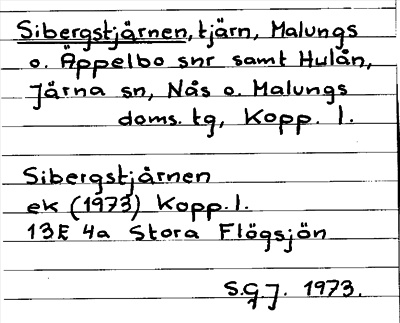 Sibergstjärnen, tjärn, Malungs
o. Äppelbo snr samt Hulån,
Järna sn, Nås o. Malungs
doms. tg, Kopp. l.
Sibergstjärnen
ek (1973) Kopp. l.
13E 4a Stora Flögsjön
S.G.J. 1973.